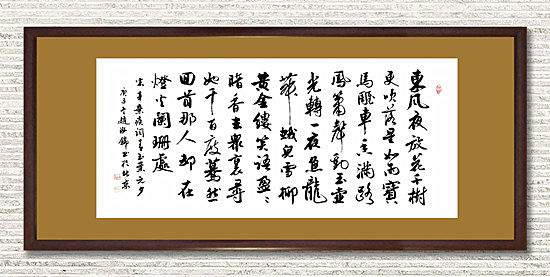 東風夜放花千樹
更吹落星如雨寶
馬雕車香滿路
鳳簫聲動玉壺
光轉一夜魚龍
舞蛾兒雪柳
黄金縷笑語盈〻
暗香去眾裏尋
她千百度驀然
回首那人却在
燈火闌珊處
宋辛棄疾詞青玉案元夕
庚子趙錦書於北京